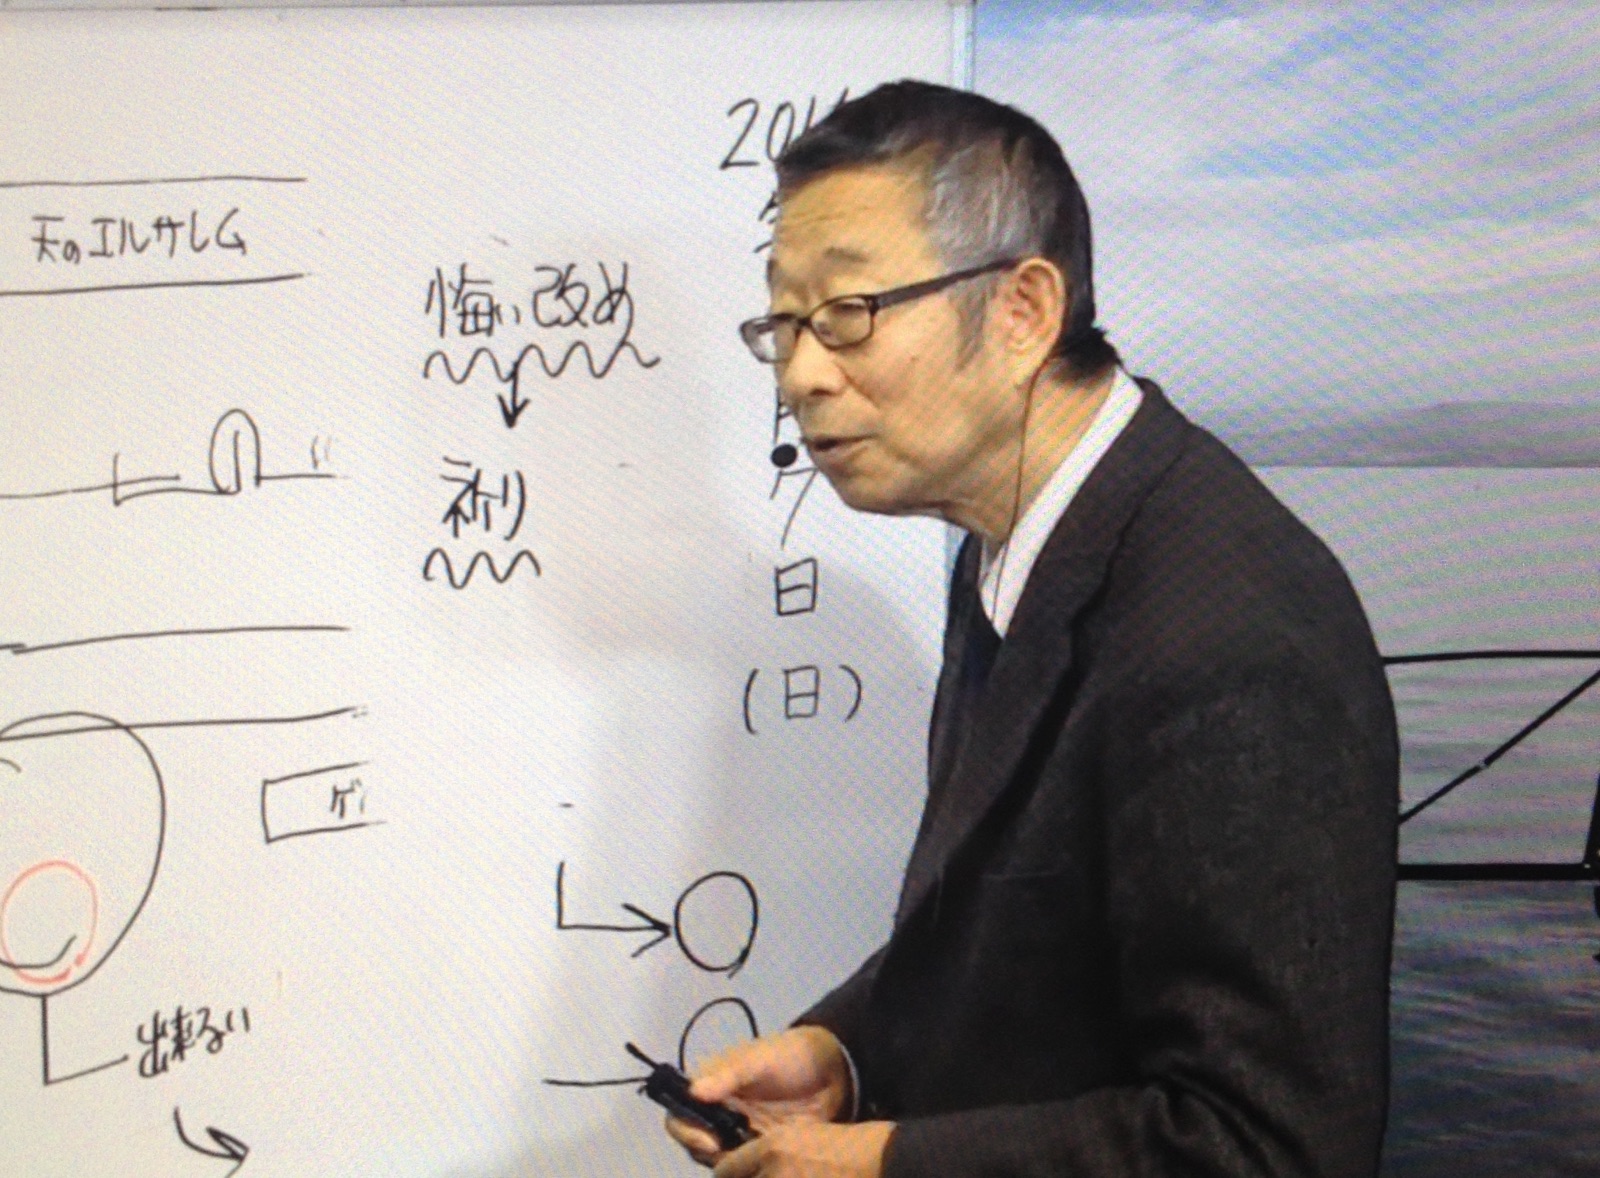 天のエルサレム
悔い改め
祈り
出来ない
7
日
(日)